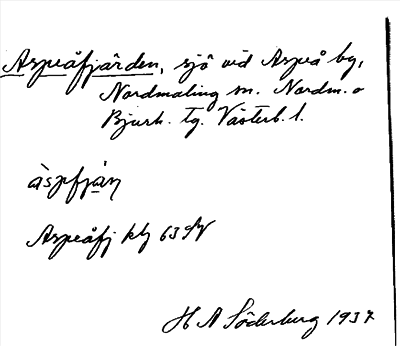 Aspeåfjärden, sjö vid Aspeå by,
Nordmaling sn. Nordm. o
Bjurh. tg. Västerb. l.
àspfjàṇ
Aspeåfj kbl 63 SV
H A Söderberg 1937